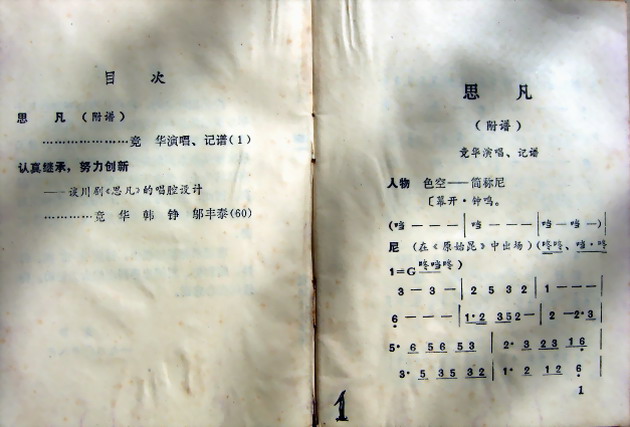 目 次
思 凡 （附谱）
…………………竞 华演唱、记谱（1）
认真继承，努力创新
——谈川剧《思凡》的唱腔设计
…………竞 华 韩 铮 邬丰泰（60）
思 凡
（附谱）
竞华演唱、记谱
人物 色空——简称尼
〔幕开·钟鸣。
（当 — — — | 当 — — — | 当 — 当 — ）|
尼 （在《原始昆》中出场）（咚咚、当·咚
1＝G 咚当咚）
3 — 3 — | 2 5 3 2 | 1 — — — |
6 — — — | 1·2 352 — | 2 —2·3 |
5· 6 56 53 | 2· 3 23 16 |
3· 5 35 32 | 1· 2 12 6 |
1
1